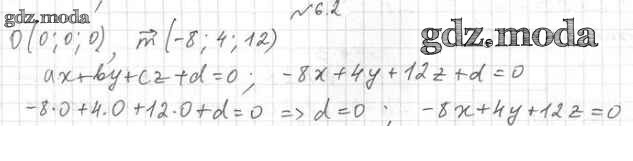 №6.2
gdz.moda
O(0;0;0), m⃗(-8;4;12)
gdz.moda
ax+by+cz+d=0; -8x+4y+12z+d=0
-8·0+4·0+12·0+d=0 => d=0; -8x+4y+12z=0